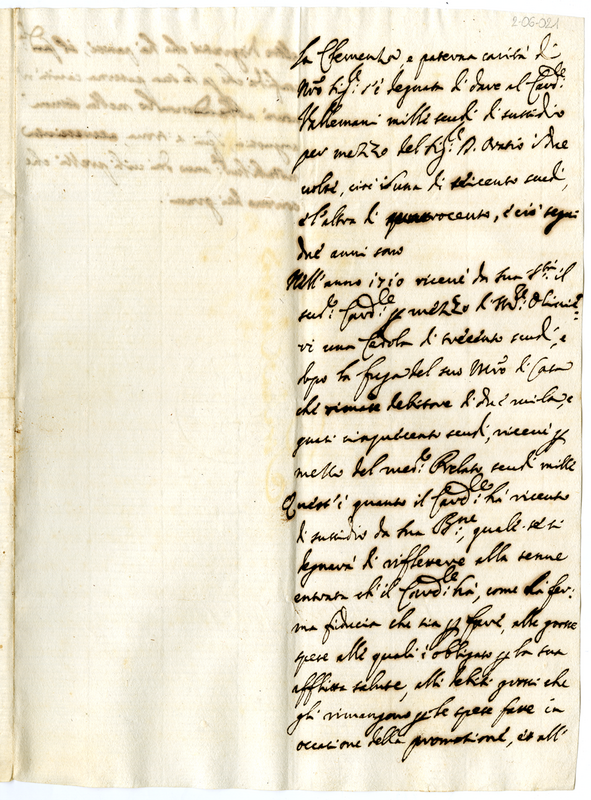 2-06-021
La Clemenza, e paterna carità di
Nro Sig.re s'è degnata di dare al Card.le
Vallemani mille scudi di sussidio
per mezzo del Sig.r D. Orazio in due
volte, cioè una di seicento scudi,
e l'altra di quattrocento, e ciò segui
due anni sono
Nell'anno 1710 ricevé da Sua S.tà il
sud.o Card.le p mezzo di Mgr Olivie-
ri una Cedola di trecento scudi, e
dopo la fuga del suo Mro di Casa
che rimase debitore di due mila, e
quasi cinquecento scudi, ricevé p
mezzo del med.o Prelato scudi mille
Quest'è quanto il Card.le hà ricevuto
di sussidio da Sua B.ne, quale se si
degnarà di riflettere alla tenue
entrata ch'il Card.le hà, come hà fer:
ma fiducia che sia p fare, alle grosse
spese alle quali è obligato p la sua
afflitta salute, alli debiti grossi che
gli rimangono p le spese fatte in
occasione della promotione, et all'